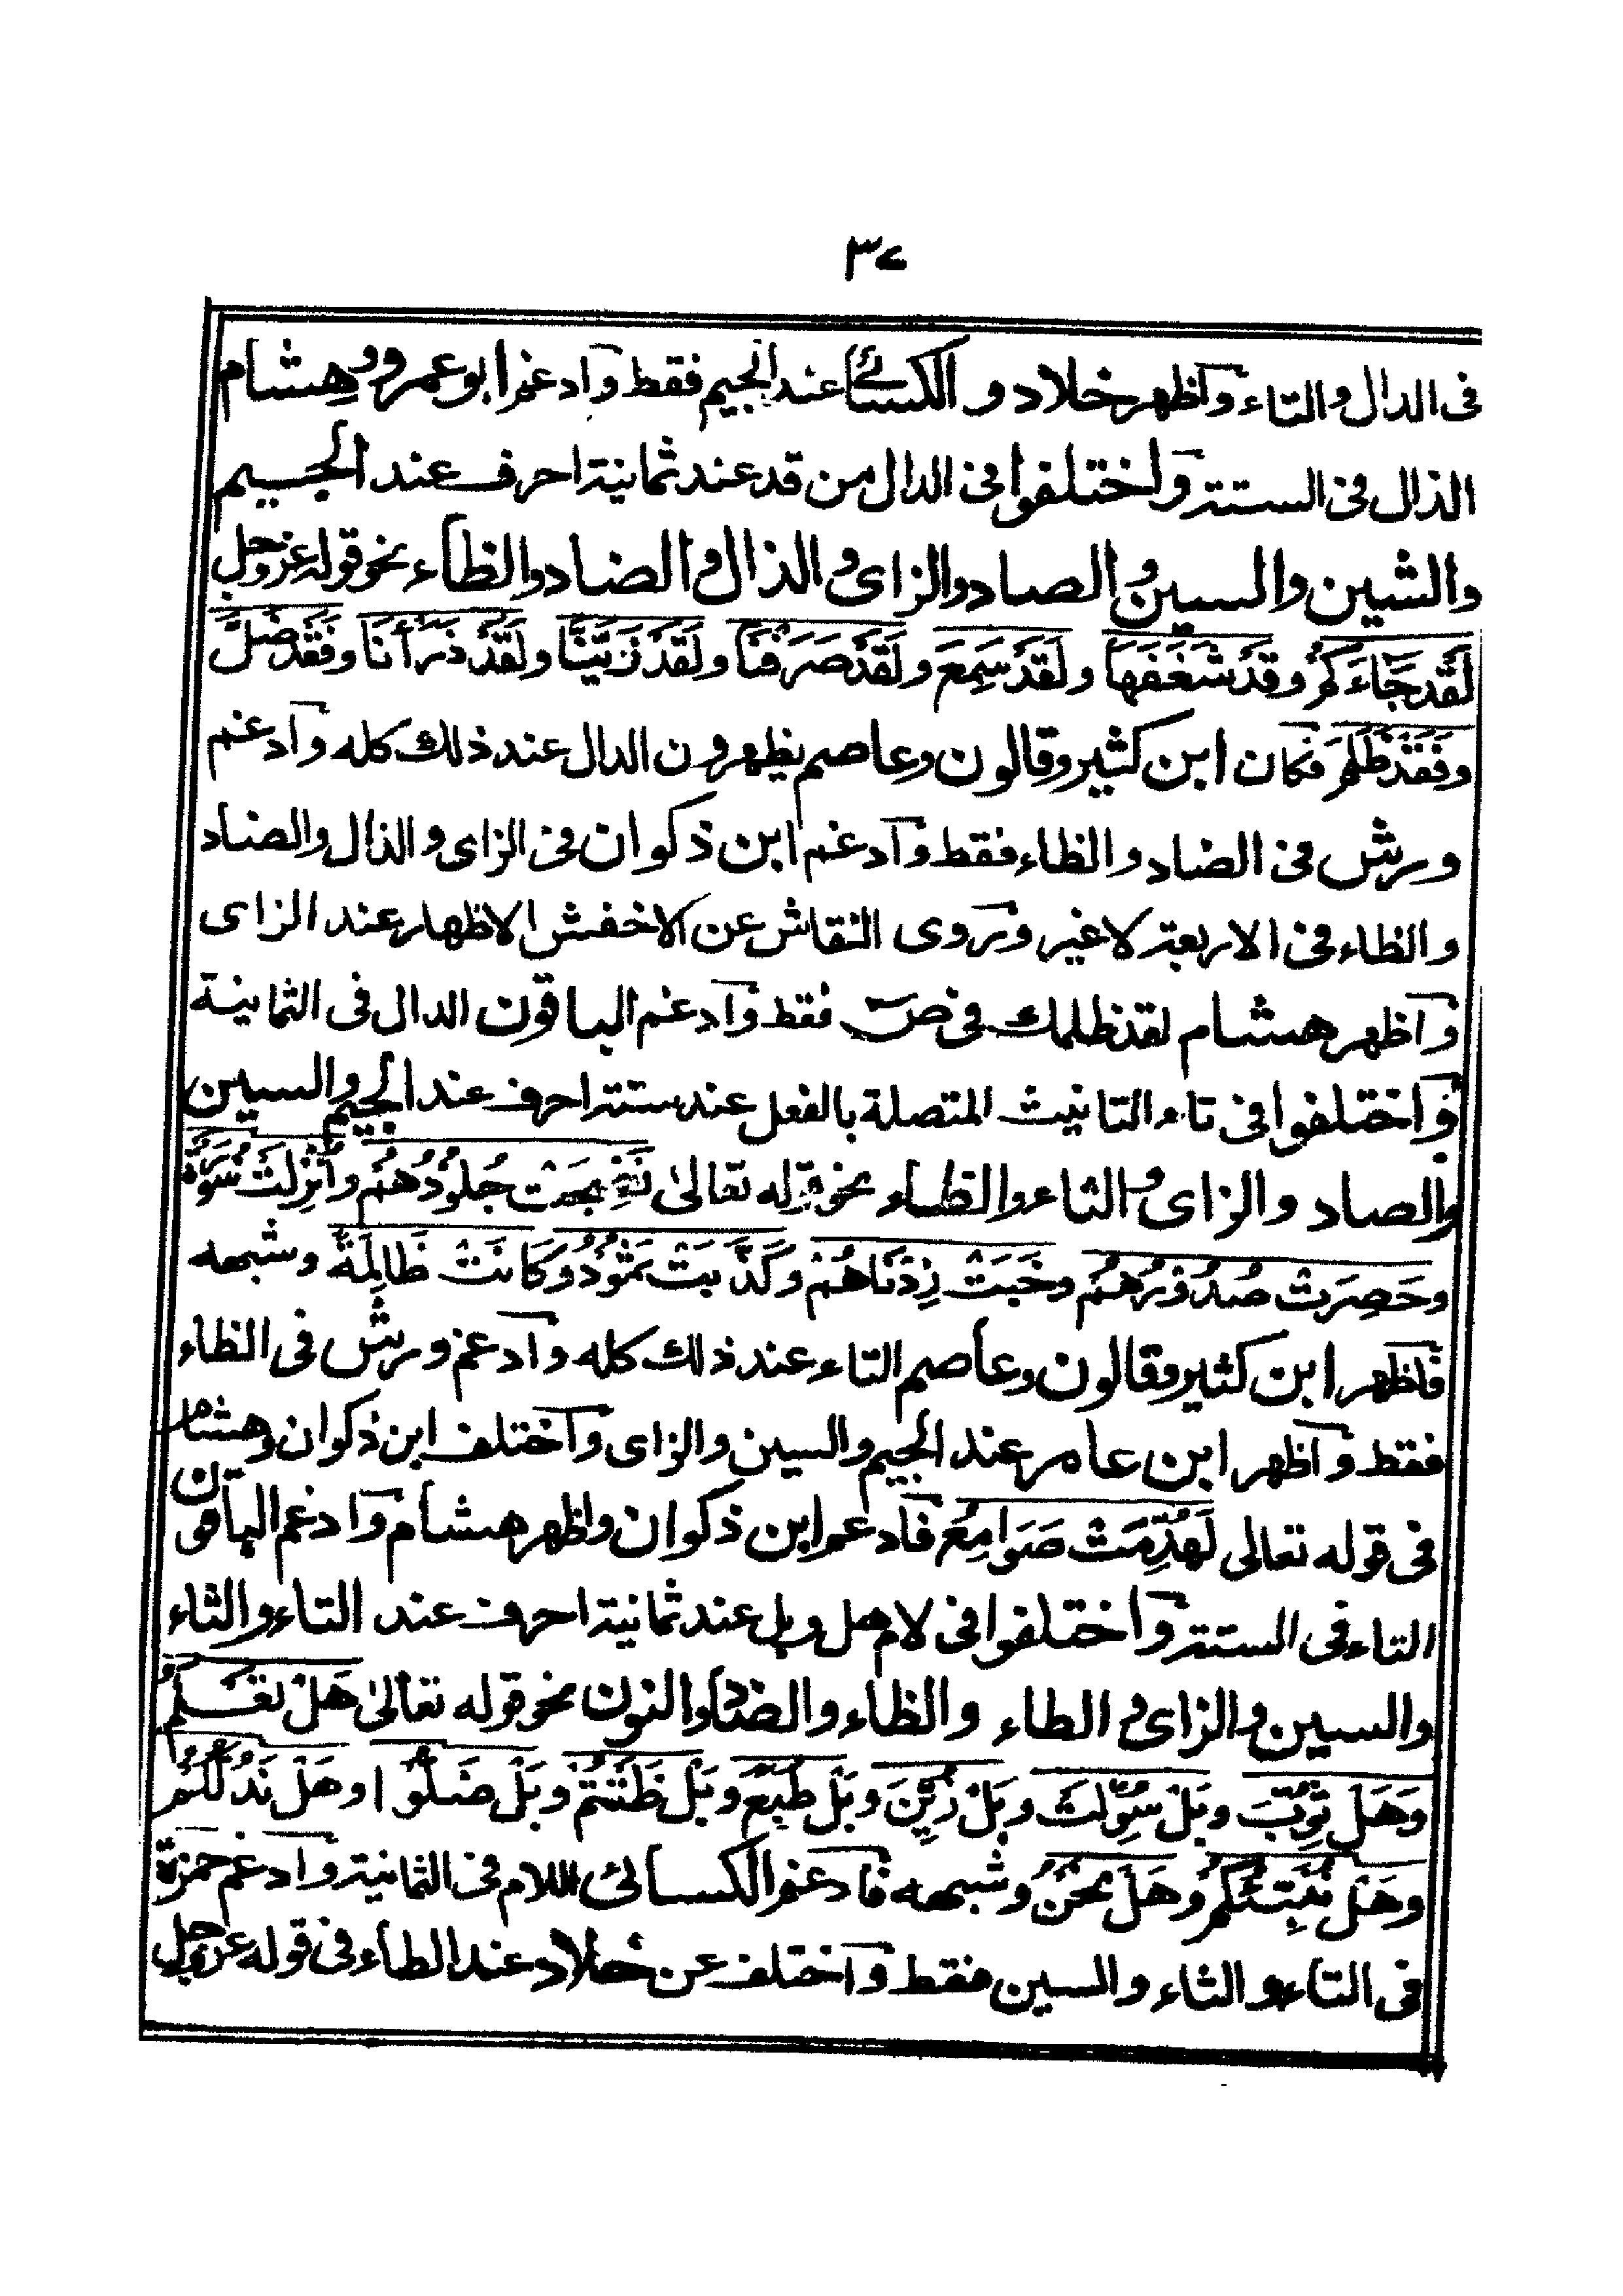 ٣٤
فى الدال والتاء واظهر خلاد والكسائى عند الجيم فقط وادغم ابو عمرو وهشام
الذال فى الستة واختلفوا فى الدال من قد عند ثمانية احرف عند الجيم
والشين والسين والصاد والزاى والذال والضاد والظاء نحو قوله عز وجل
لَقَدْ جَاءَكُمْ وقَدْ شَغَفَهَا ولَقَدْ سَمِعَ ولَقَدْ صَرَفْنَا ولَقَدْ زَيَّنَّا ولَقَدْ ذَرَأْنَا وفَقَدْ ضَلَّ
وفَقَدْ ظَلَمَ فكان ابن كثير وقالون وعاصم يظهرون الدال عند ذلك كله وادغم
ورش فى الضاد والظاء فقط وادغم ابن ذكوان فى الزاى والذال والضاد
والظاء فى الاربعة لا غير وروى النقاش عن الاخفش الاظهار عند الزاى
واظهر هشام لقد ظلمك فى ص فقط وادغم الباقون الدال فى الثمانية
واختلفوا فى تاء التانيث المتصلة بالفعل عند ستة احرف عند الجيم والسين
والصاد والزاى والثاء والظاء نحو قوله تعالىٰ نَضِجَتْ جُلُودُهُمْ وأُنْزِلَتْ سُورَةٌ
وحَصِرَتْ صُدُورُهُمْ وخَبَتْ زِدْنَاهُمْ وكَذَّبَتْ ثَمُوْدُ وكَانَتْ ظَالِمَةً وشبهه
فاظهر ابن كثير وقالون وعاصم التاء عند ذلك كله وادغم ورش فى الظاء
فقط واظهر ابن عامر عند الجيم والسين والزاى واختلف ابن ذكوان وهشام
فى قوله تعالى لَهُدِّمَتْ صَوَامِعُ فادغم ابن ذكوان واظهر هشام وادغم الباقون
التاء فى الستة واختلفوا فى لام هل وبل عند ثمانية احرف عند التاء والثاء
والسين والزاى والطاء والظاء والضاد والنون نحو قوله تعالىٰ هَلْ تَعْلَمُ
وَهَلْ ثُوِّبَ وبَلْ سَوَّلَتْ وبَلْ زُيِّنَ وبَلْ طَبَعَ وبَلْ ظَنَنْتُمْ وبَلْ ضَلُّوْا وهَلْ نَدُلُّكُمْ
وهَلْ نُنَبِّئُكُمْ وهَلْ نَحْنُ وشبهه فادغم الكسائى اللام فى الثمانية وادغم حمزة
فى التاء والثاء والسين فقط واختلف عن خلاد عند الطاء فى قوله عز وجل